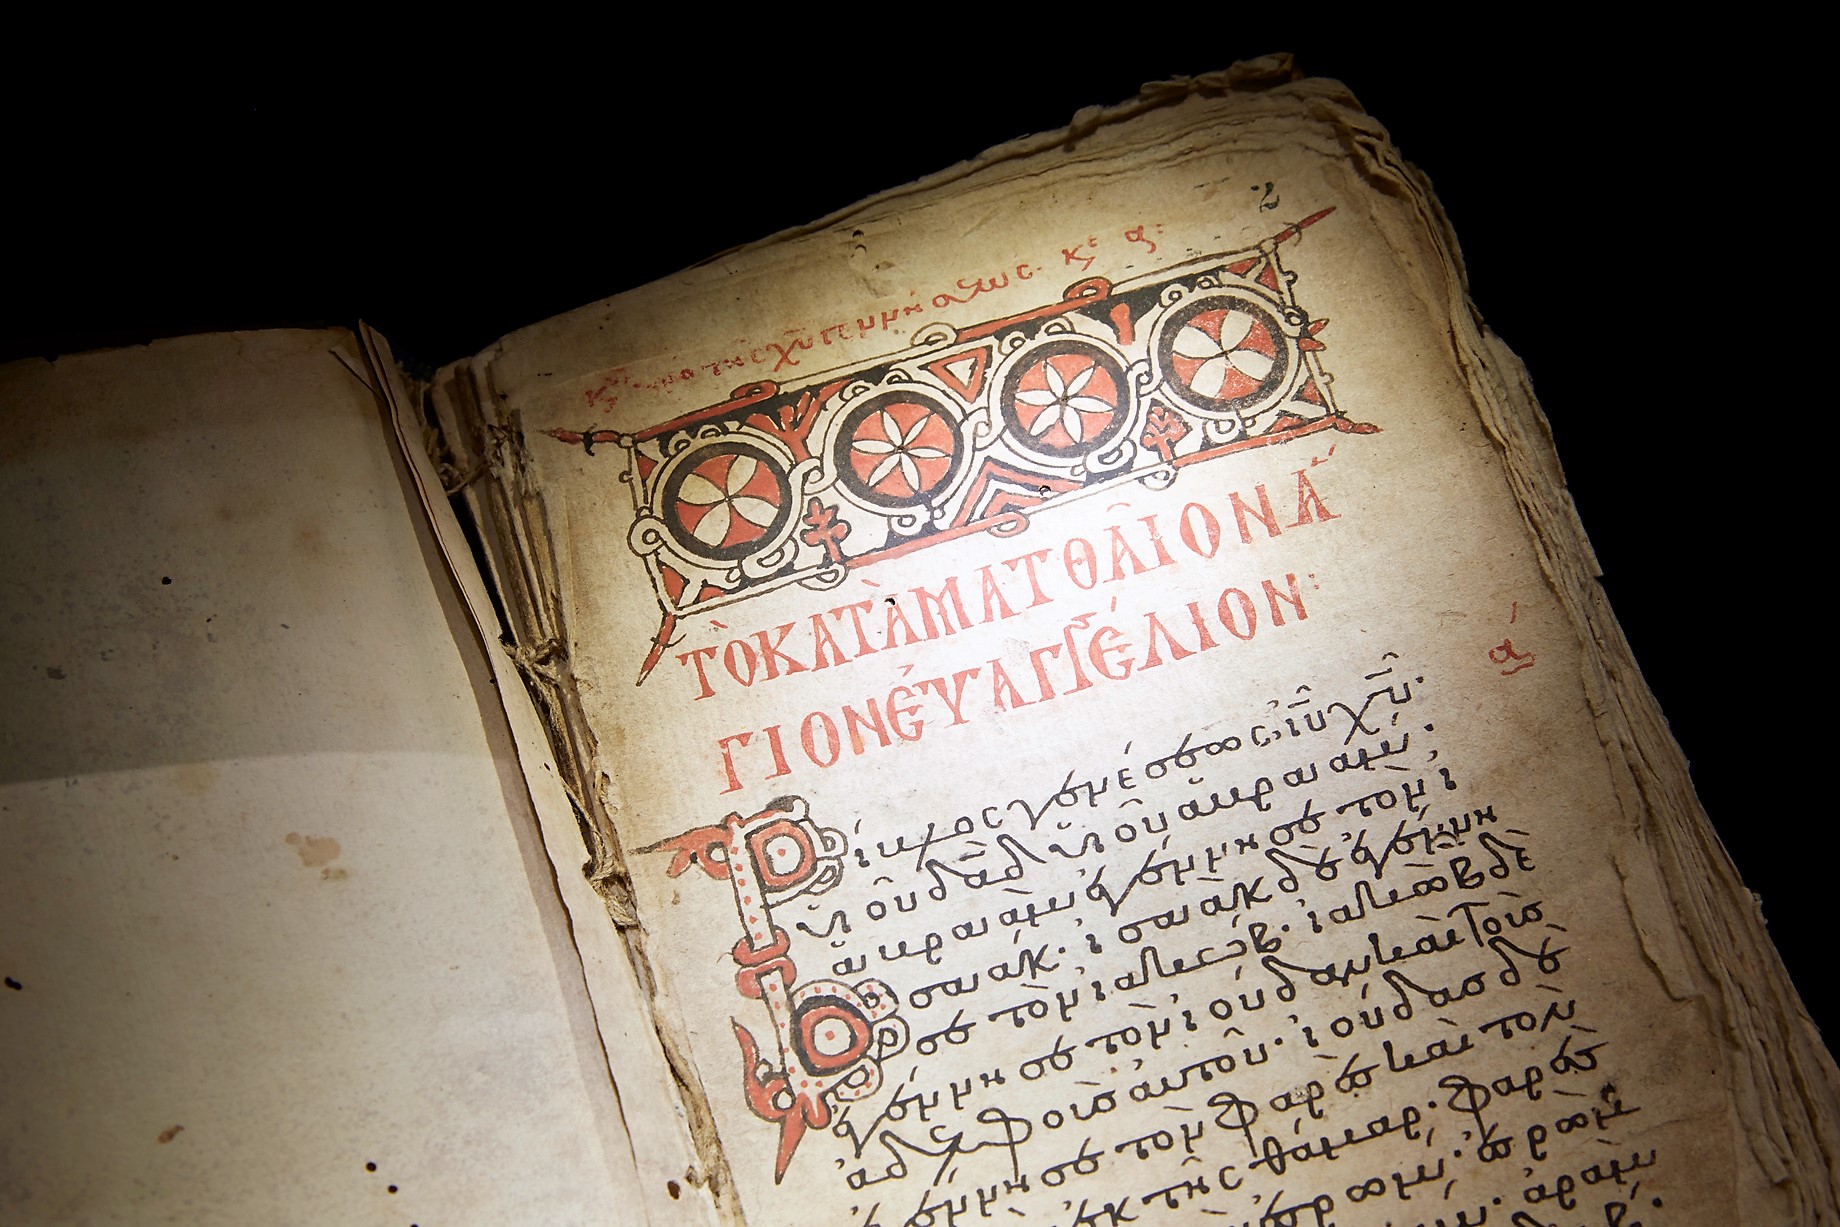 2
τῆς χῦ γεννήσεως· κε α:
ΤῸ ΚΑΤᾺ ΜΑΤΘΑῖΟΝ Ἅ
ΓΙΟΝ ἘΥΑΓΓΈΛΙΟΝ:
ά
Βίβλος γενέσεως, ἰῦ χῦ·
υἱοῦ δαδ υἱοῦ ἀβραάμ·
ἀβραὰμ ἐγέννησε τὸν ἰ
σαάκ· ἰσαὰκ δὲ ἐγέννη
σε τὸν ἰακώβ· ἰακὼβ δὲ
ἐγέννησε τὸν ἰούδαν καὶ τοὺς
ἀδελφοὺς αὐτοῦ· ἰούδας δὲ
ἐγέννησε τὸν φαρὲς καὶ τὸν
ἐκ τῆς θάμαρ· φαρὲς
ἐσρώμ· ἐσρὼμ
ἀράμ